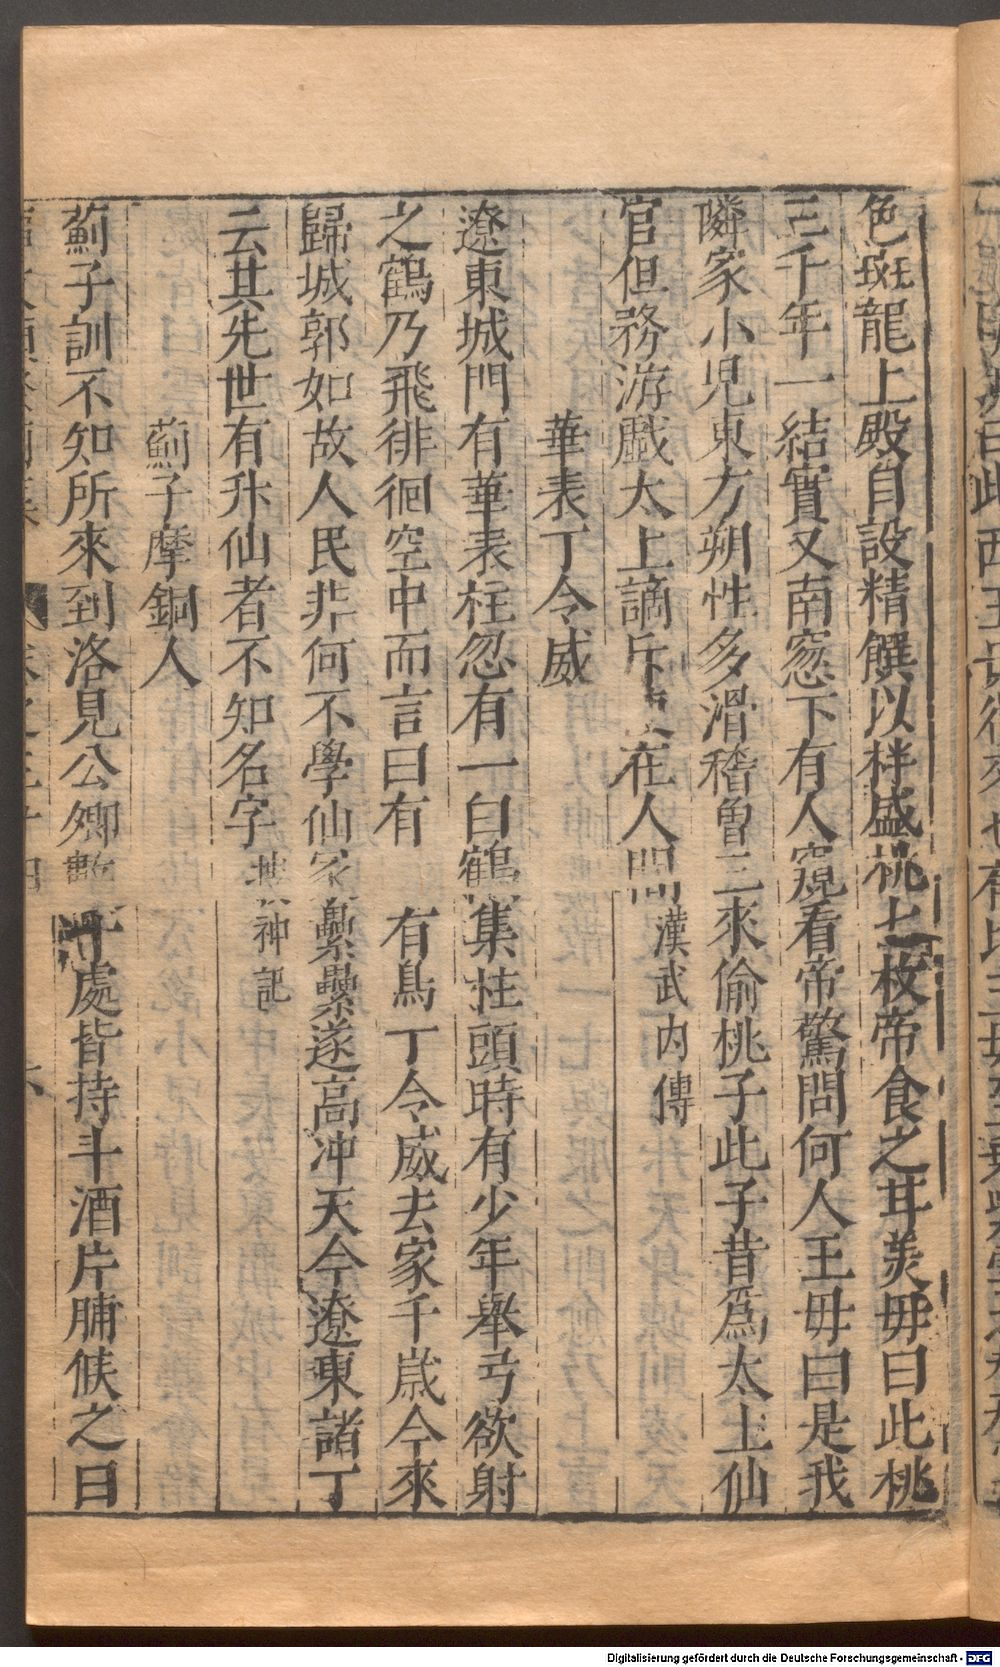 色斑龍上殿自設精饌以柈盛桃七枚帝食之甘美毋曰此桃
三千年一結實又南窓下有人窺看帝驚問何人王毋曰是我
隣家小兒東方朔性多滑稽曾三來偷桃子此子昔爲太上仙
官但務游戲太上謫斥在人間漢武內傳
華表丁令威
遼東城門有華表柱忽有一白鶴集柱頭時有少年舉弓欲射
之鶴乃飛徘徊空中而言曰有有鳥丁令威去家千歲今來
歸城郭如故人民非何不學仙冢纍纍遂高冲天今遼東諸丁
云其先世有升仙者不知名字神記
薊子摩銅人
薊子訓不知所來到洛見公卿數十處皆持斗酒片脯候之曰
Digitalisierung gefördert durch die Deutsche Forschungsgemeinschaft - DFG